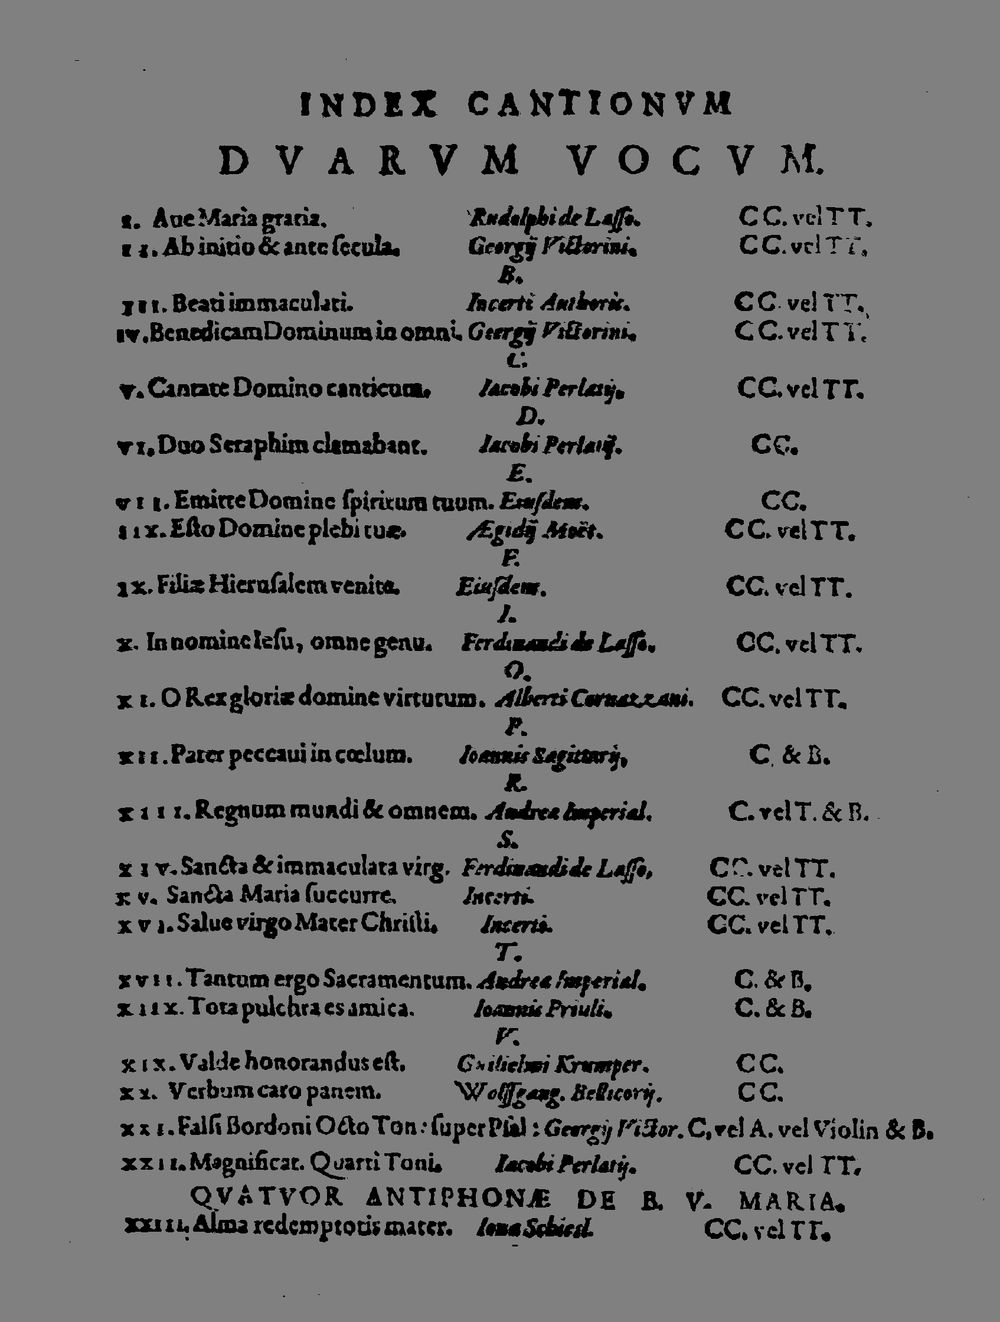 INDEX CANTIONVM
DVARVM VOCVM.
I. Aue Maria gratia. Rudolphi de Lasso. CC. vel TT.
II. Ab initio & ante secula. Georgij Victorini. CC. vel TT.
B.
III. Beati immaculati. Incerti Authoris. CC. vel TT.
IV. Benedicam Dominum in omni. Georgij Victorini. CC. vel TT.
C.
V. Cantate Domino canticum. Iacobi Perlatij. CC. vel TT.
D.
VI. Duo Seraphim clamabant. Iacobi Perlatij. CC.
E.
VII. Emitte Domine spiritum tuum. Eiusdem. CC.
IIX. Esto Domine plebi tuæ. Ægidij Moët. CC. vel TT.
F.
IX. Filiæ Hierusalem venite. Eiusdem. CC. vel TT.
I.
X. In nomine Iesu, omne genu. Ferdinandi de Lasso. CC. vel TT.
O.
XI. O Rex gloriæ domine virtutum. Alberti Cornazzani. CC. vel TT.
P.
XII. Pater peccaui in cœlum. Ioannis Sagittarij. C. & B.
R.
XIII. Regnum mundi & omnem. Andrea Imperial. C. vel T. & B.
S.
XIV. Sancta & immaculata virg. Ferdinandi de Lasso. CC. vel TT.
XV. Sancta Maria succurre. Incerti. CC. vel TT.
XVI. Salue virgo Mater Christi. Incerti. CC. vel TT.
T.
XVII. Tantum ergo Sacramentum. Andrea Imperial. C. & B.
XIIX. Tota pulchra es amica. Ioannis Priuli. C. & B.
V.
XIX. Valde honorandus est. Guilielmi Krumper. CC.
XX. Verbum caro panem. Wolffgang. Bellicorij. CC.
XXI. Falsi Bordoni Octo Ton: super Psal: Georgij Victor. C. vel A. vel Violin & B.
XXII. Magnificat. Quarti Toni. Iacobi Perlatij. CC. vel TT.
QVATVOR ANTIPHONÆ DE B. V. MARIA.
XXIII. Alma redemptoris mater. Iona Schiesl. CC. vel TT.